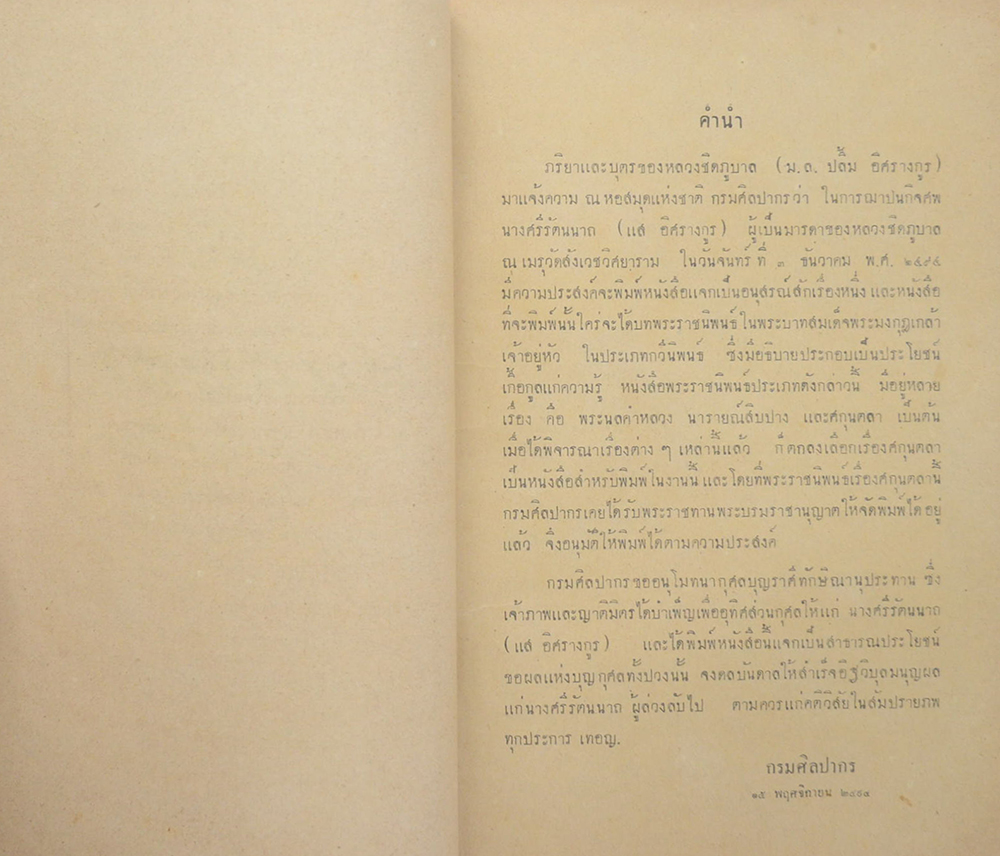 คำนำ
ภริยาและบุตรของหลวงชิดภูบาล (ม.ล. ปลื้ม อิศรางกูร)
มาแจ้งความ ณ หอสมุดแห่งชาติ กรมศิลปากรว่า ในการฌาปนกิจศพ
นางศรีรัตนนาถ (แส อิศรางกูร) ผู้เป็นมารดาของหลวงชิดภูบาล
ณ เมรุวัดสังเวชวิศยาราม ในวันจันทร์ ที่ ๓ ธันวาคม พ.ศ. ๒๔๙๔
มีความประสงค์จะพิมพ์หนังสือแจกเป็นอนุสรณ์สักเรื่องหนึ่ง และหนังสือ
ที่จะพิมพ์นั้นใคร่จะได้บทพระราชนิพนธ์ ในพระบาทสมเด็จพระมงกุฎเกล้า
เจ้าอยู่หัว ในประเภทกวีนิพนธ์ ซึ่งมีอธิบายประกอบเป็นประโยชน์
เกื้อกูลแก่ความรู้ หนังสือพระราชนิพนธ์ประเภทดังกล่าวนี้ มีอยู่หลาย
เรื่อง คือ พระนลคำหลวง นารายณ์สิบปาง และศกุนตลา เป็นต้น
เมื่อได้พิจารณาเรื่องต่าง ๆ เหล่านี้แล้ว ก็ตกลงเลือกเรื่องศกุนตลา
เป็นหนังสือสำหรับพิมพ์ในงานนี้ และโดยที่พระราชนิพนธ์เรื่องศกุนตลานี้
กรมศิลปากรเคยได้รับพระราชทานพระบรมราชานุญาตให้จัดพิมพ์ได้อยู่
แล้ว จึงอนุมัติให้พิมพ์ได้ตามความประสงค์
กรมศิลปากรขออนุโมทนากุศลบุญราศีทักษิณานุประทาน ซึ่ง
เจ้าภาพและญาติมิตรได้บำเพ็ญเพื่ออุทิศส่วนกุศลให้แก่ นางศรีรัตนนาถ
(แส อิศรางกูร) และได้พิมพ์หนังสือนี้แจกเป็นสาธารณประโยชน์
ขอผลแห่งบุญกุศลทั้งปวงนั้น จงดลบันดาลให้สำเร็จอิฏฐวิบุลมนุญผล
แก่นางศรีรัตนนาถ ผู้ล่วงลับไป ตามควรแก่คติวิสัยในสัมปรายภพ
ทุกประการ เทอญ.
กรมศิลปากร
๑๕ พฤศจิกายน ๒๔๙๔